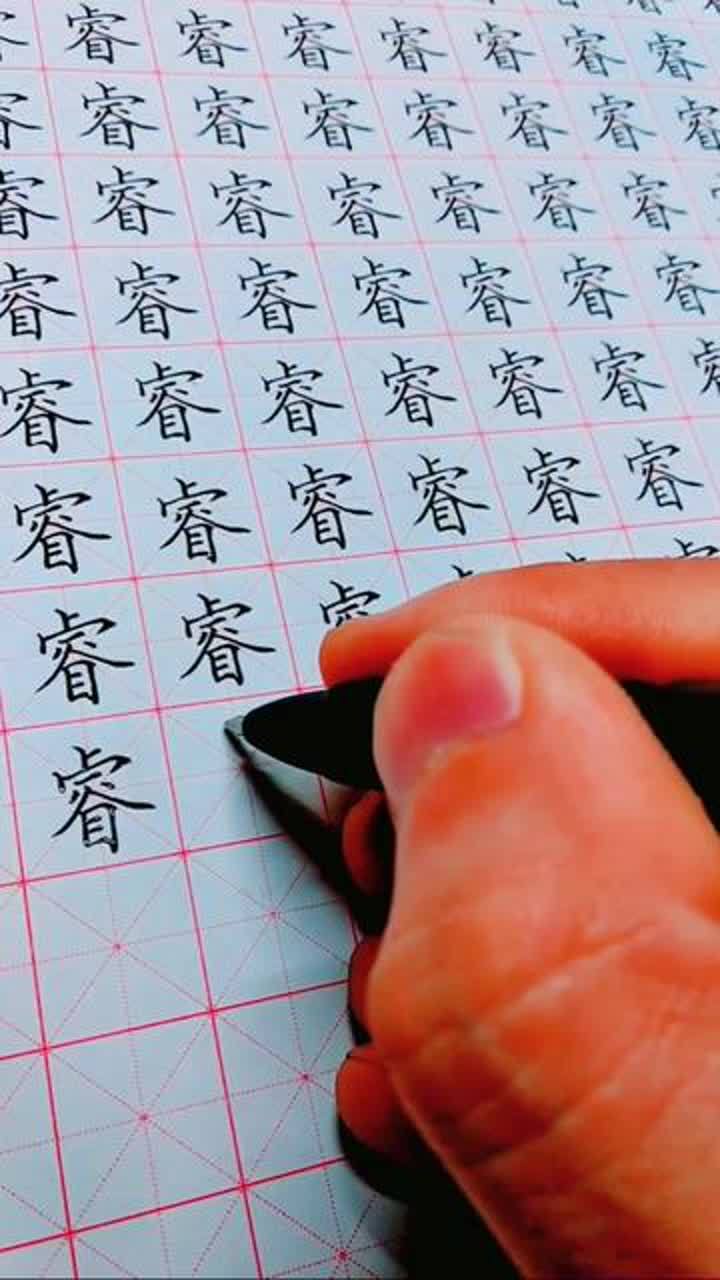 睿睿睿睿睿睿睿睿
睿睿睿睿睿睿睿睿
睿睿睿睿睿睿睿
睿睿睿睿睿睿睿
睿睿睿睿睿睿睿
睿睿睿睿睿睿
睿睿睿
睿